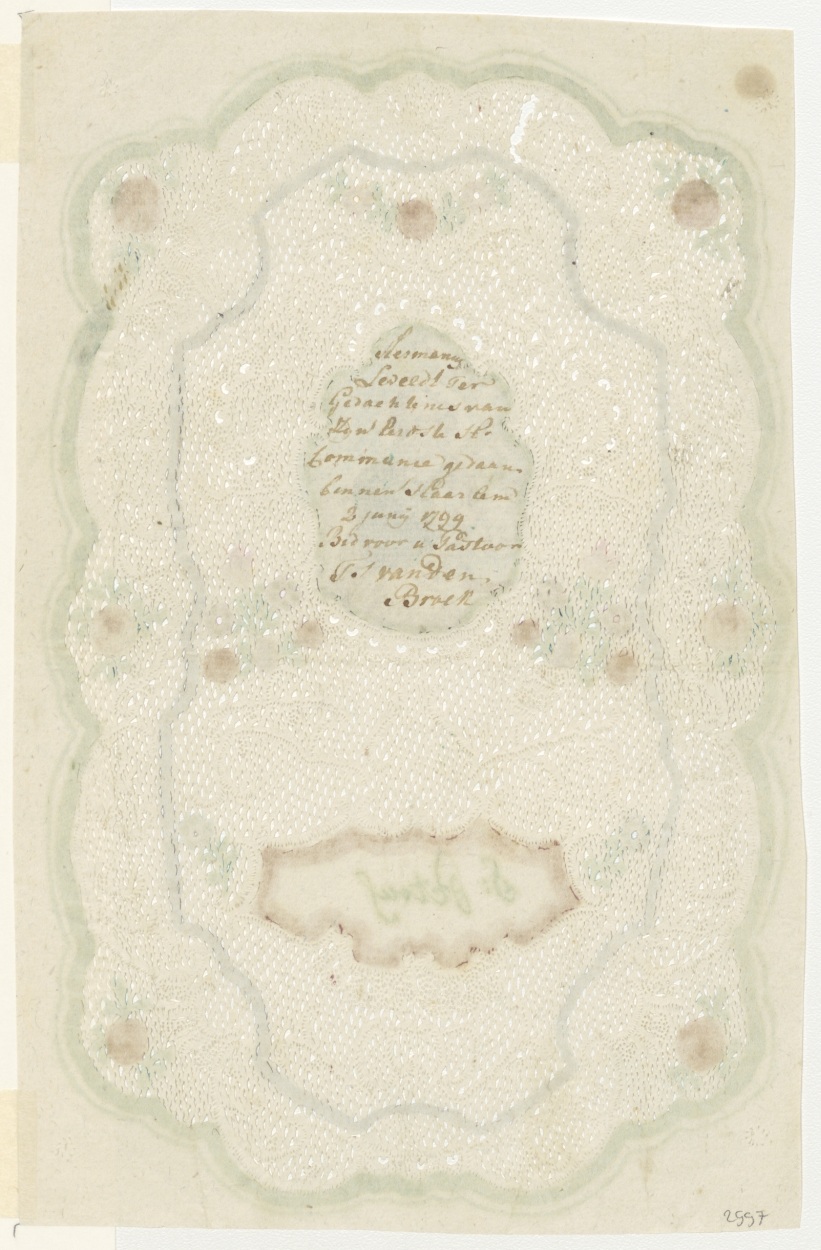 Hermanus
Leveelt Ter
Gedachtenis van
Zyn Eerste H:
Commune gedaan
binnen Haarlem
2 junij 1799
Bid voor u Pastoor
J J van Den
Broek
St Petrus
2997